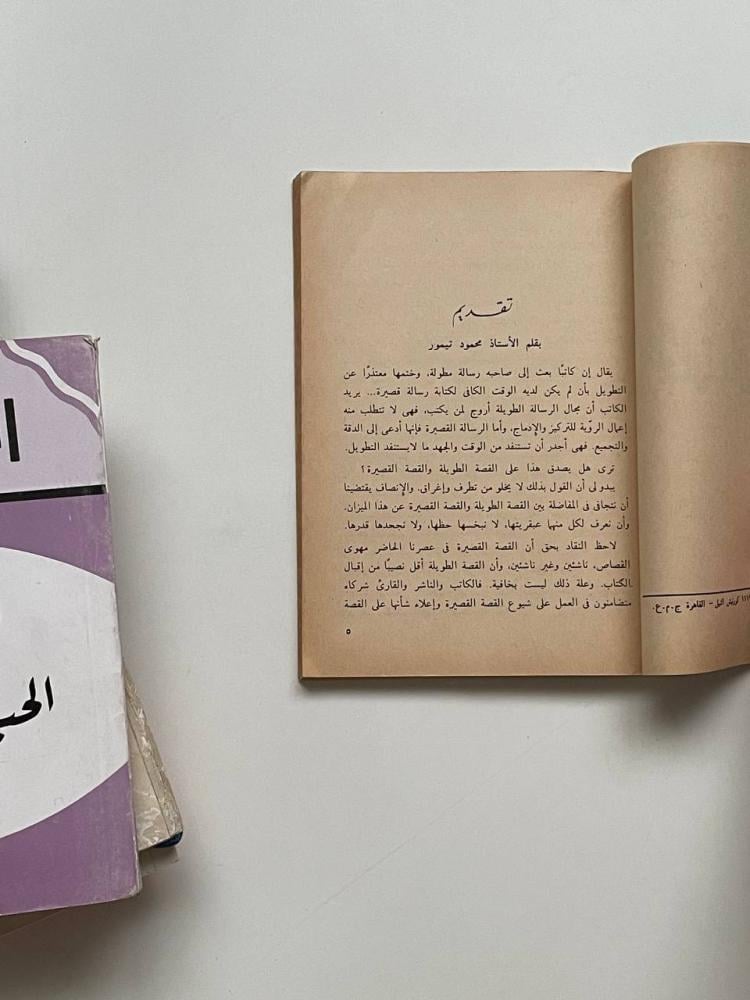 تقديم
بقلم الأستاذ محمود تيمور
يقال إن كاتبًا بعث إلى صاحبه رسالة مطولة، وختمها معتذرًا عن
التطويل بأن لم يكن لديه الوقت الكافى لكتابة رسالة قصيرة... يريد
الكاتب أن مجال الرسالة الطويلة أروح لمن يكتب، فهى لا تتطلب منه
إعمال الروّية للتركيز والإدماج، وأما الرسالة القصيرة فإنها أدعى إلى الدقة
والتجميع. فهى أجدر أن تستنفد من الوقت والجهد ما لايستنفد التطويل.
ترى هل يصدق هذا على القصة الطويلة والقصة القصيرة؟
يبدو لى أن القول بذلك لا يخلو من تطرف وإغراق. والإنصاف يقتضينا
أن نتجافى فى المفاضلة بين القصة الطويلة والقصة القصيرة عن هذا الميزان.
وأن نعرف لكل منهما عبقريتها، لا نبخسها حظها، ولا نجحدها قدرها.
لاحظ النقاد بحق أن القصة القصيرة فى عصرنا الحاضر مهوى
القصاص، ناشئين وغير ناشئين، وأن القصة الطويلة أقل نصيبًا من إقبال
الكتاب. وعلة ذلك ليست بخافية. فالكاتب والناشر والقارئ شركاء
متضامنون فى العمل على شيوع القصة القصيرة وإعلاء شأنها على القصة
٥
كورنيش النيل - القاهرة ج.م.ع.